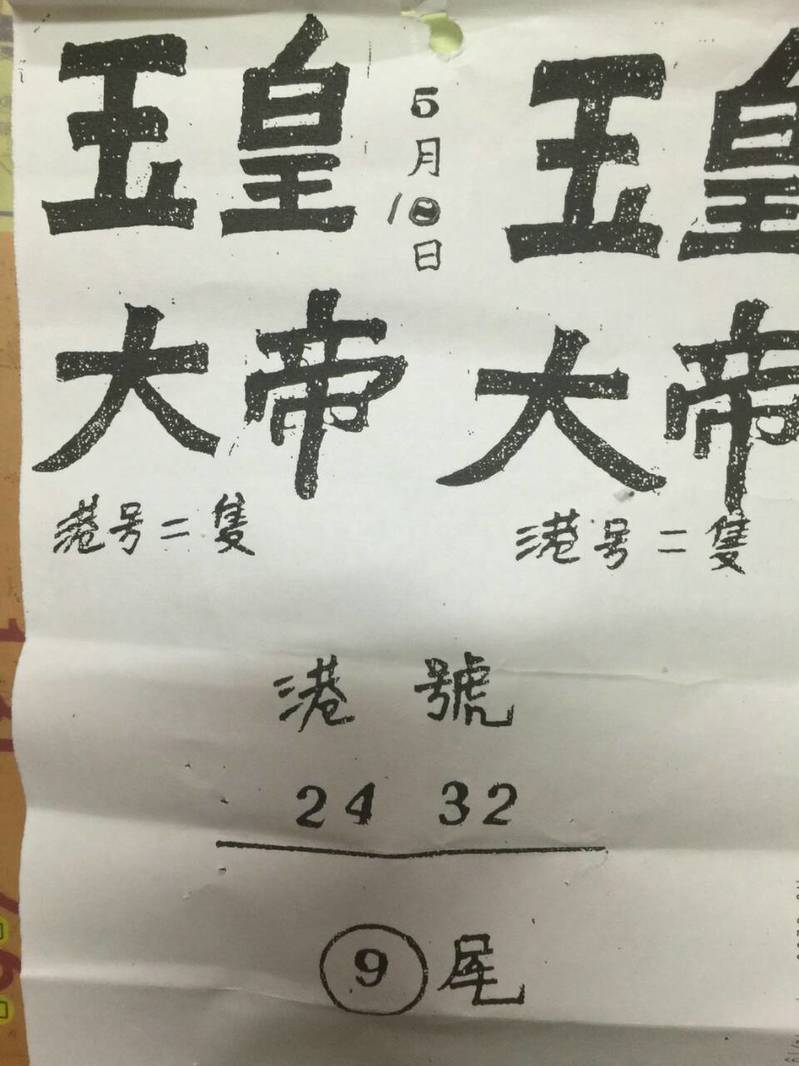 玉皇
大帝
5月10日
港号二隻
玉皇
大帝
港号二隻
港號
24 32
9尾